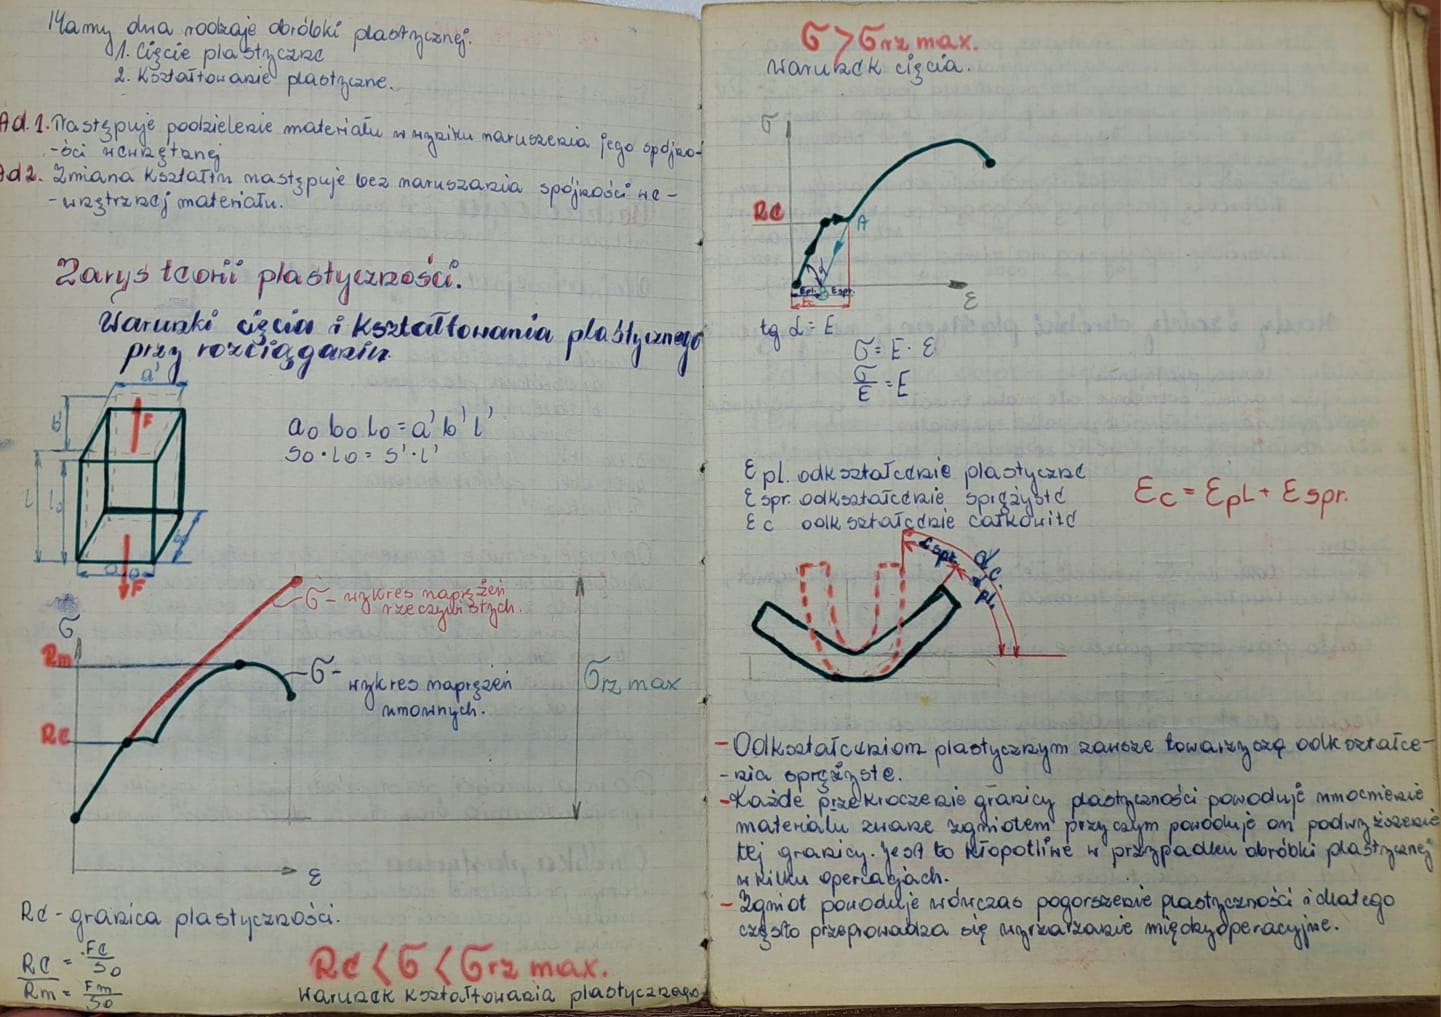 Mamy dwa rodzaje obróbki plastycznej.
1. Cięcie plastyczne
2. Kształtowanie plastyczne.
Ad.1. Następuje podzielenie materiału w wyniku naruszenia jego spójno-
-ści wewnętrznej
Ad 2. Zmiana kształtu następuje bez naruszania spójności we-
-wnętrznej materiału.
Zarys teorii plastyczności.
Warunki cięcia i kształtowania plastycznego
przy rozciąganiu
a'
b'
F
l
l₀
b₀
a₀
F
a₀ b₀ l₀ = a' b' l'
S₀ · l₀ = S' · l'
σ
Rm
Re
σ - wykres naprężeń
rzeczywistych.
σ - wykres naprężeń
umownych.
σrz max
ε
Re - granica plastyczności.
Re = Fe/S₀
Rm = Fm/S₀
Re < σ < σrz max.
Warunek kształtowania plastycznego
σ > σrz max.
Warunek cięcia.
σ
Re
A
α
Epl. Espr.
Ec
ε
tg α = E
σ = E · ε
σ/ε = E
ε pl. odkształcenie plastyczne
ε spr. odkształcenie sprężyste
ε c odkształcenie całkowite
εc = εpl + εspr.
α spr.
α c.
α pl.
- Odkształceniom plastycznym zawsze towarzyszą odkształce-
-nia sprężyste.
- Każde przekroczenie granicy plastyczności powoduje umocnienie
materiału zwane zgniotem przy czym powoduje on podwyższenie
tej granicy. Jest to kłopotliwe w przypadku obróbki plastycznej
w kilku operacjach.
- Zgniot powoduje wówczas pogorszenie plastyczności i dlatego
często przeprowadza się wyżarzanie międzyoperacyjne.